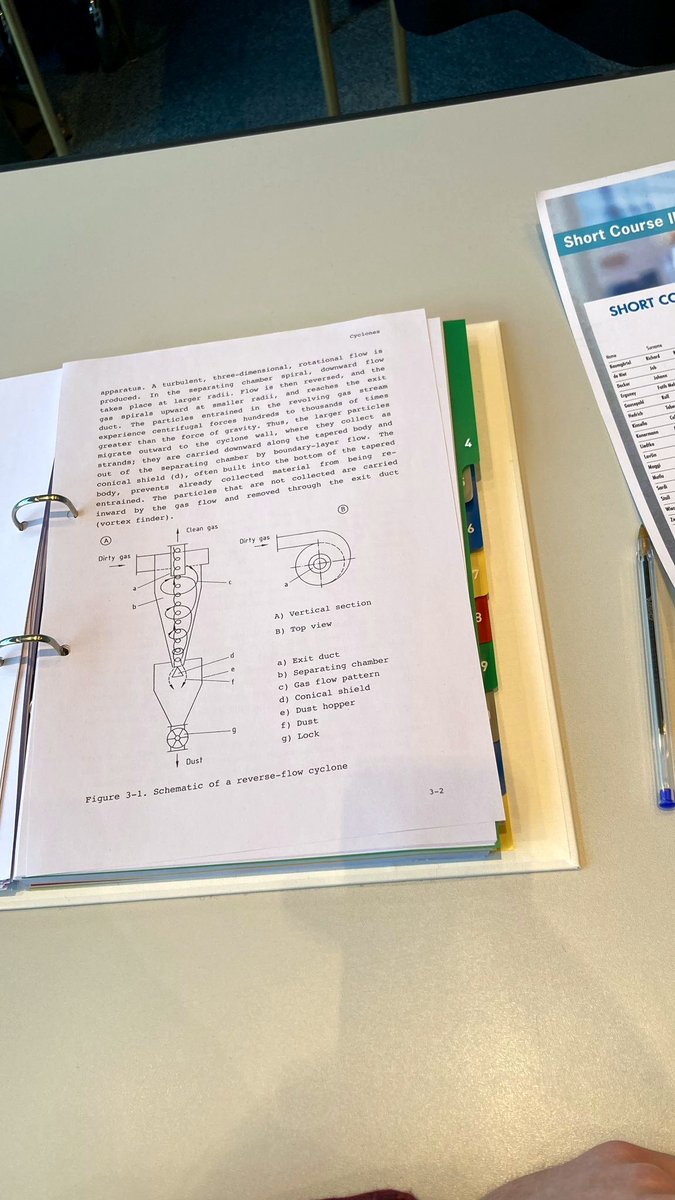 Cyclones
apparatus. A turbulent, three-dimensional, rotational flow is
produced. In the separating chamber spiral, downward flow
takes place at larger radii. Flow is then reversed, and the
gas spirals upward at smaller radii, and reaches the exit
duct. The particles entrained in the revolving gas stream
experience centrifugal forces hundreds to thousands of times
greater than the force of gravity. Thus, the larger particles
migrate outward to the cyclone wall, where they collect as
strands; they are carried downward along the tapered body and
out of the separating chamber by boundary-layer flow. The
conical shield (d), often built into the bottom of the tapered
body, prevents already collected material from being re-
entrained. The particles that are not collected are carried
inward by the gas flow and removed through the exit duct
(vortex finder).
A
Clean gas
Dirty gas
a
b
c
d
e
f
g
Dust
B
Dirty gas
a
A) Vertical section
B) Top view
a) Exit duct
b) Separating chamber
c) Gas flow pattern
d) Conical shield
e) Dust hopper
f) Dust
g) Lock
Figure 3-1. Schematic of a reverse-flow cyclone
3-2
4
5
6
7
8
9
Short Course I
SHORT CO
Name Surname
Richard
de Riet Job
Decker Johann
Erguney Fatih
Ralf
Hedrich
Kinsella
Liedtke
Maggi
Mello
Sardi